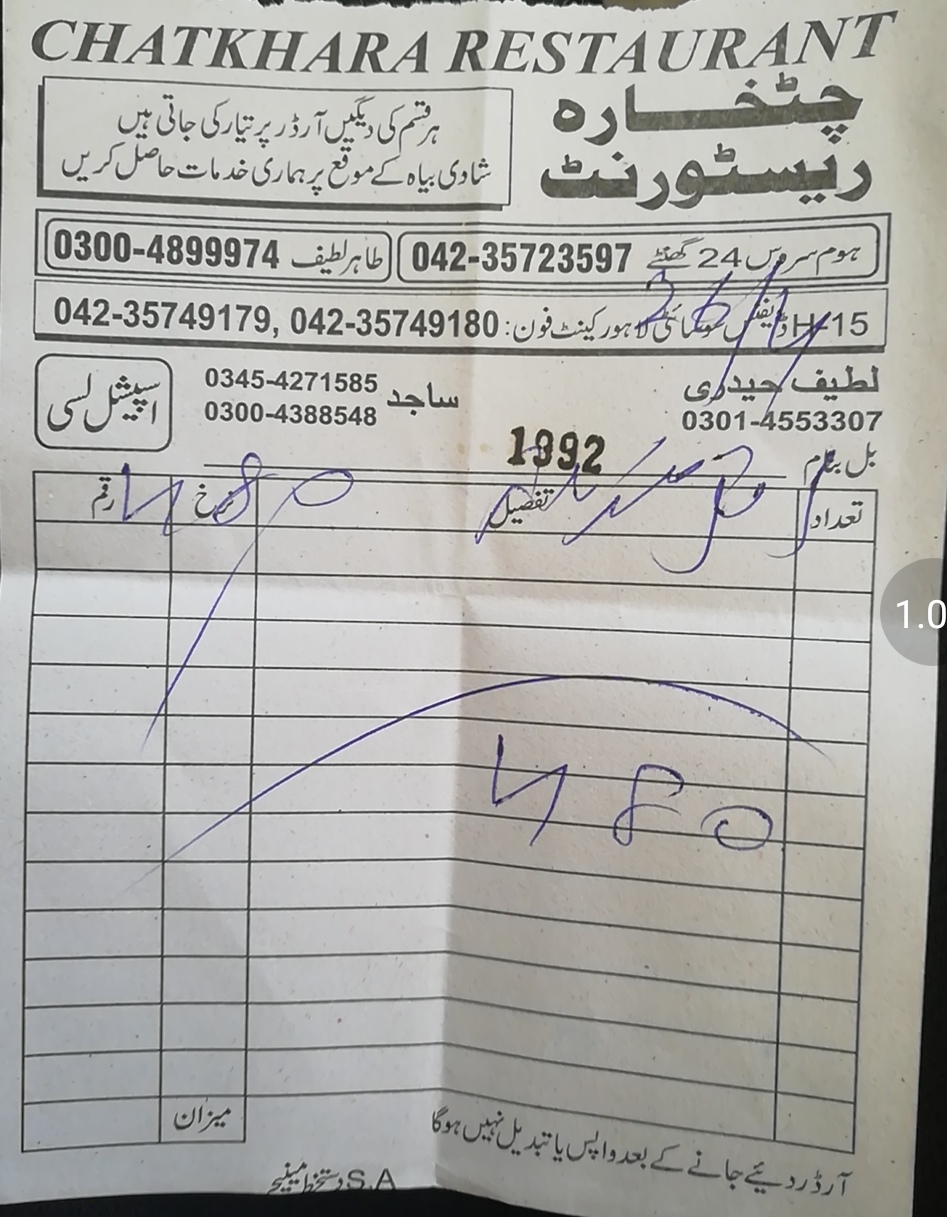 CHATKHARA RESTAURANT
چٹخارہ
ریسٹورنٹ
ہر قسم کی دیگیں آرڈر پر تیار کی جاتی ہیں
شادی بیاہ کے موقع پر ہماری خدمات حاصل کریں
ہوم سروس 24 گھنٹے 042-35723597
طاہر لطیف 0300-4899974
H-15 ڈیفنس سوسائٹی لاہور کینٹ فون: 042-35749179, 042-35749180
لطیف حیدری
0301-4553307
ساجد
0345-4271585
0300-4388548
اسپیشل لسی
بل بنام
1992
تعداد تفصیل نرخ رقم
480
480
میزان
آرڈر دیئے جانے کے بعد واپس یا تبدیل نہیں ہوگا
S.A دستخط مینیجر